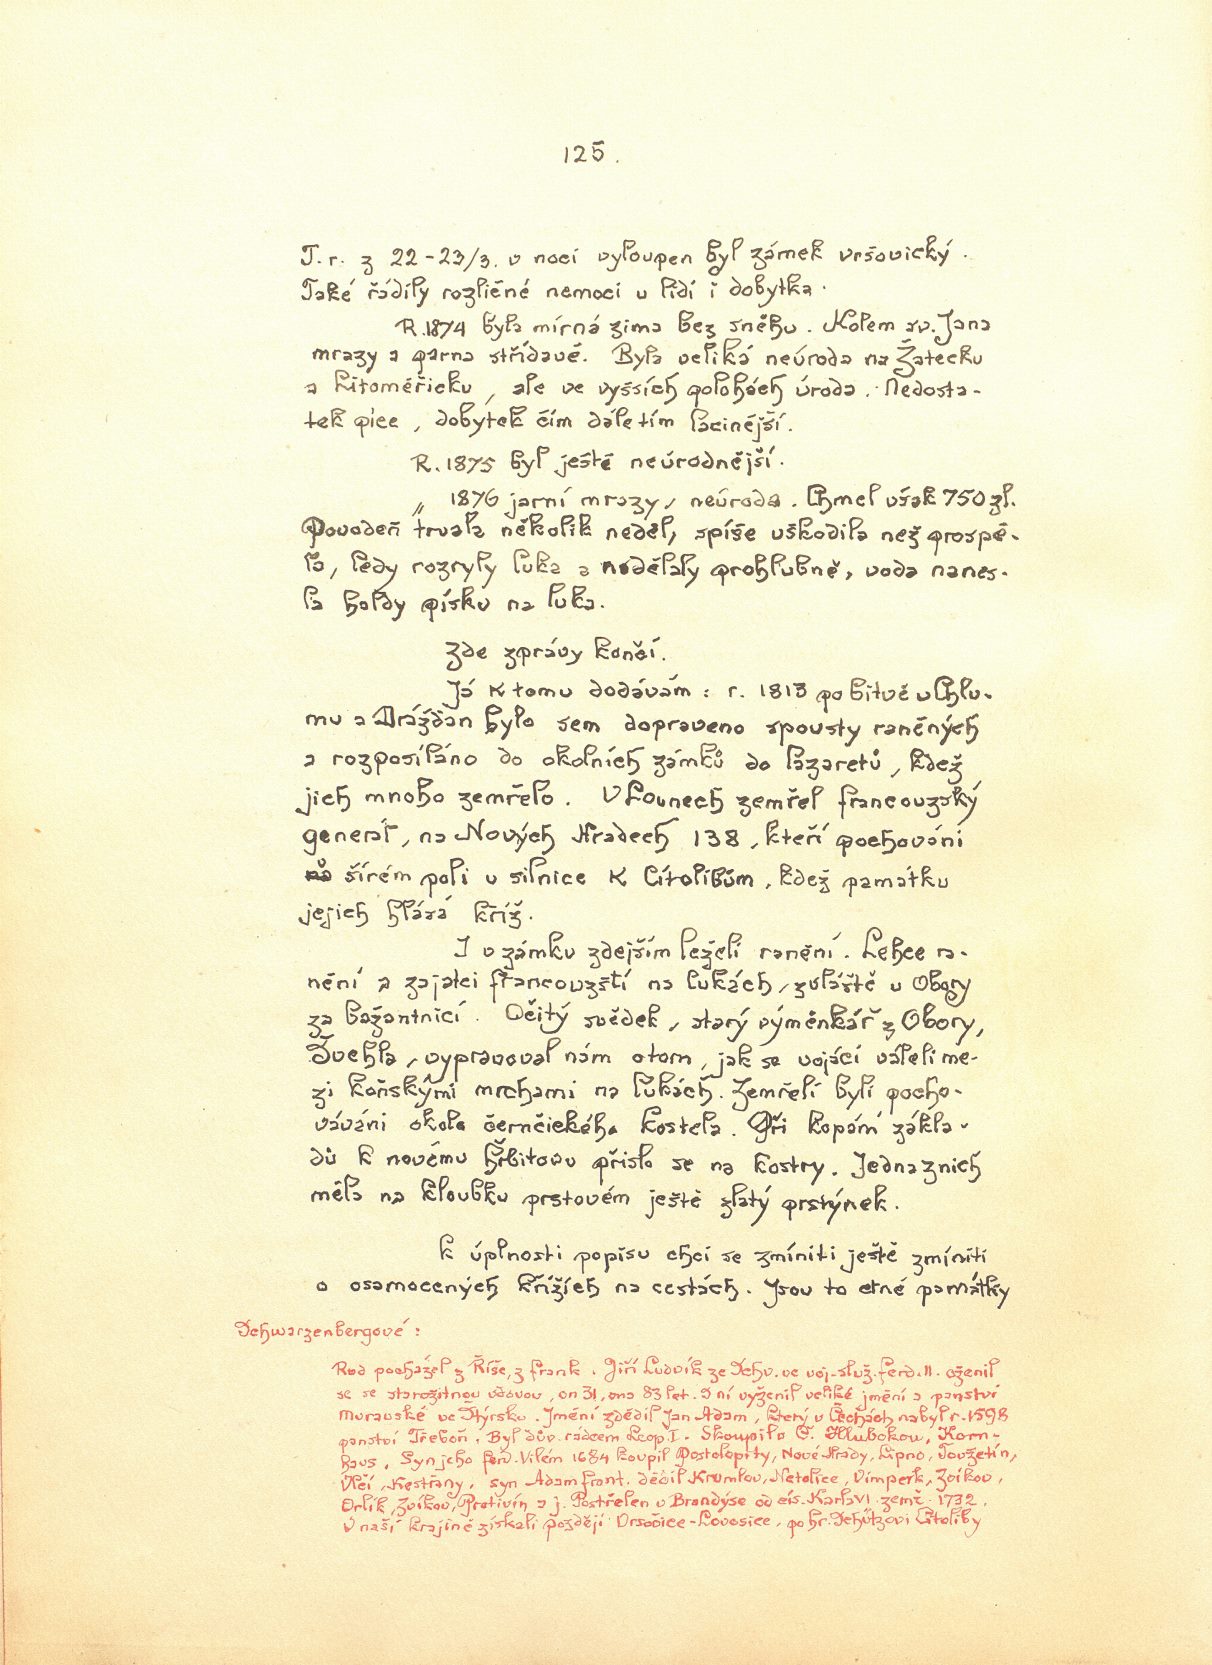 125.
T. r. z 22-23/3. v noci vyloupen byl zámek vršovický.
Také řádily rozličné nemoci u lidí i dobytka.
R. 1874 byla mírná zima bez sněhu. Kolem sv. Jana
mrazy a parna střídavě. Byla veliká neúroda na Žatecku
a Litoměřicku, ale ve vyšších polohách úroda. Nedosta-
tek píce, dobytek čím dále tím lacinější.
R. 1875 byl ještě neúrodnější.
„ 1876 jarní mrazy, neúroda. Chmel však 750 zl.
Povodeň trvala několik neděl, spíše uškodila než prospě-
la, ledy rozryly luka a nadělaly prohlubně, voda nanes-
la haldy písku na luka.
Zde zprávy končí.
Já k tomu dodávám: r. 1813 po bitvě u Chlu-
mu a Drážďan bylo sem dopraveno spousty raněných
a rozposíláno do okolních zámků do lazaretů, kdež
jich mnoho zemřelo. V Lounech zemřel francouzský
generál, na Nových Hradech 138, kteří pochováni
šírém poli u silnice k Cítolibům, kdež památku
jejich hlásá kříž.
I v zámku zdejším leželi ranění. Lehce ra-
nění a zajatci francouzští na lukách, zvláště u Obory
za bažantnicí. Očitý svědek, starý výměnkář z Obory,
Švehla, vypravoval nám o tom, jak se vojáci váleli me-
zi koňskými mrchami na lukách. Zemřelí byli pocho-
váváni okolo černčického kostela. Při kopání zákla-
dů k novému hřbitovu přišlo se na kostry. Jedna z nich
měla na kloubku prstovém ještě zlatý prstýnek.
K úplnosti popisu chci se zmíniti ještě zmíniti
o osamocených křížích na cestách. Jsou to ctné památky
Schwarzenbergové:
Rod pocházel z Říše, z frank. Jiří Ludvík ze Schv. ve voj. služ. Ferd. II. oženil
se se starožitnou vdovou, on 31, ona 83 let. S ní vyženil veliké jmění a panství
Muravské ve Štýrsku. Jmění zdědil Jan Adam, který v Čechách nabyl r. 1598
panství Třeboň. Byl dův. rádcem Leop. I. Skoupil Hlubokou, Korn-
haus, Syn jeho Ferd. Vilém 1684 koupil Postoloprty, Nové Hrady, Lipno, Toužetín,
Vlčí, Kestřany, syn Adam Frant. dědil Krumlov, Netolice, Vimperk, Zvíkov,
Orlík, Zvíkov, Protivín a j. Postřelen v Brandýse od cís. Karla VI. zemř. 1732.
V naší krajině získali později Vršovice-Lovosice, po hr. Schützovi Cítoliby